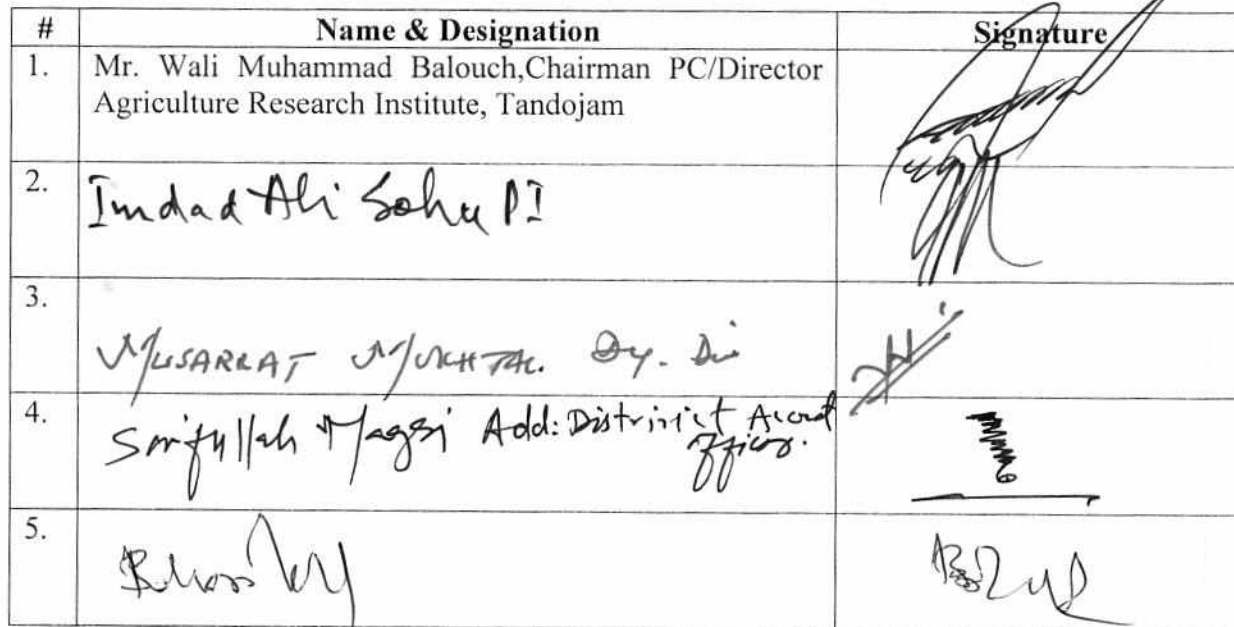 # Name & Designation Signature
1. Mr. Wali Muhammad Balouch,Chairman PC/Director
Agriculture Research Institute, Tandojam
2. Imdad Ali Sohu PI
3.
MUSARRAT MUKHTAR. Dy. Dir
4. Saifullah Magsi Add: Distrinict Accout
Officer.
5.